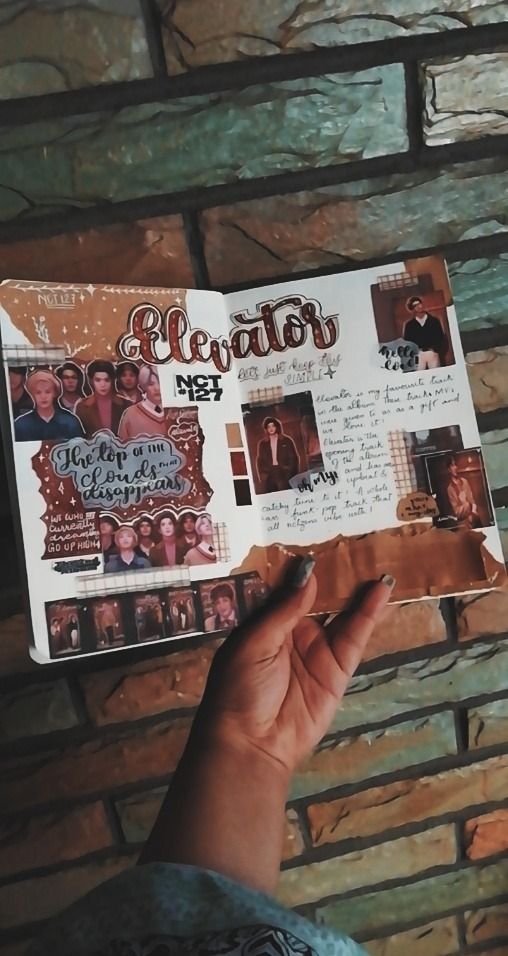 NCT 127
Elevator
NCT
#127
let's just keep this
SIMPLE
hello
love!
The top of the
clouds that
disappears
WE WHO
currently
dreaming
GO UP HIGH
Elevator is my favourite track
in the album. These track MVs
were given to us as a gift and
we love it!
Elevator is the
opening track
of the album
and has an
upbeat &
catchy tune to it! A whole
ass funk-pop track that
all nctzens vibe with!
oh my!